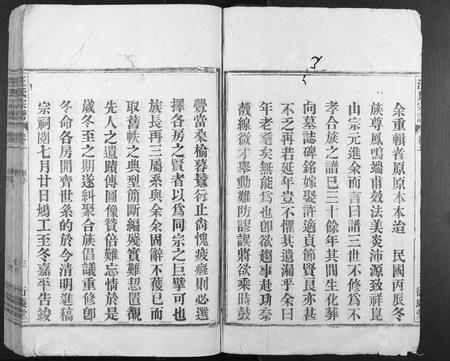 余重輯者原原本本造　民國丙辰冬
族尊鳳鳴端甫效法美炎沛源致祥崑
山宗元進余而言曰譜三世不修爲不
孝合族之譜已三十餘年其間生化葬
向墓誌碑銘嫁娶許適貞節賢良亦甚
不乏再若延年豈不懼其遺漏乎余曰
年老耄矣無能爲也卽欲趨事赴功奈
襪線微才舉動難防謬誤將欲乘時鼓
舋當桑榆暮景行止尙愧疲癃則必選
擇各房之賢者以爲同宗之巨擘可也
族長再三屬系與余余固辭不獲已而
取舊帙之典型簡斷編殘實難恝置觀
先人之遺蹟傳圖像贊倍難忘情於是
歲冬至之期遂糾聚合族倡議重修卽
冬命各房開齊世系的於今清明進稿
宗祠閏七月廿日鳩工至冬嘉平告竣